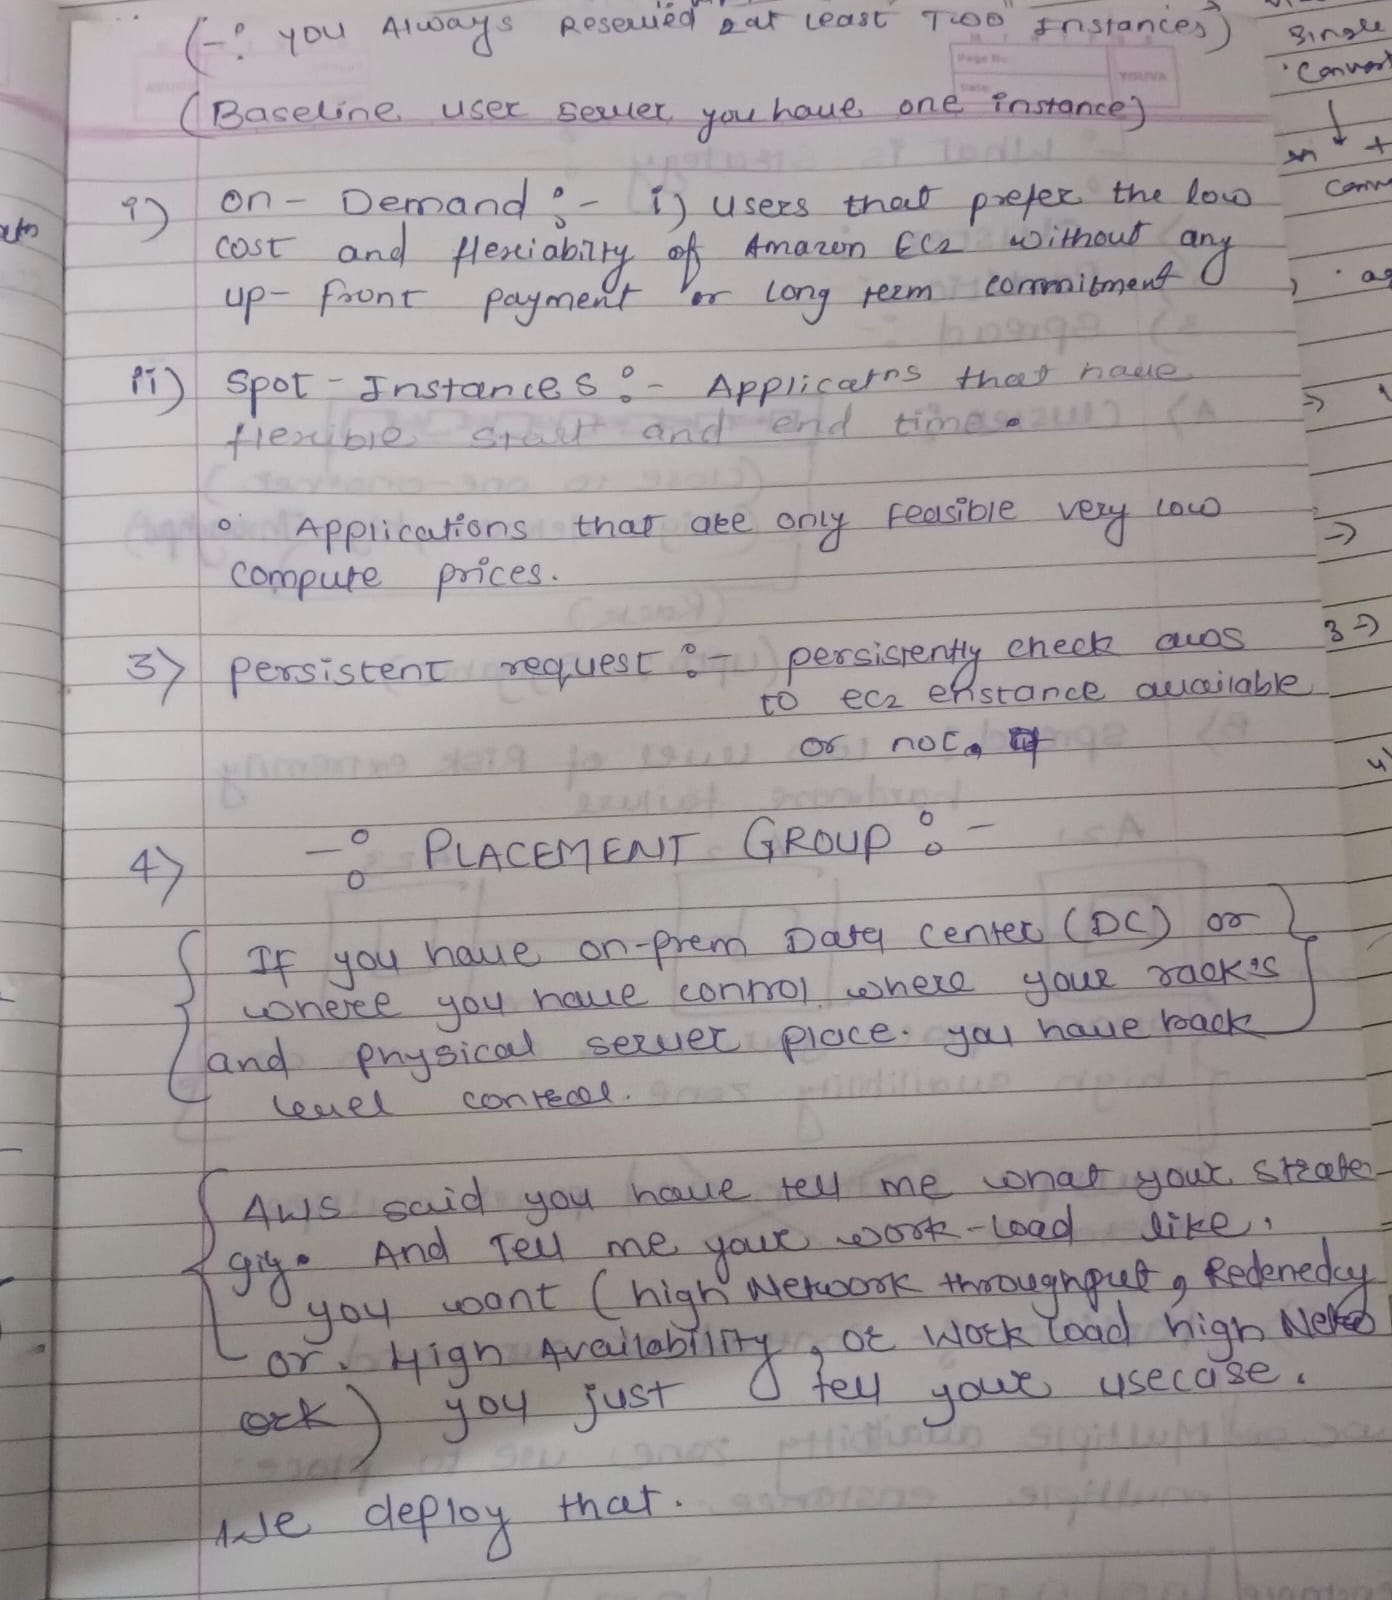 (-: you Always Reserved at Least Two Instances)
(Baseline user server you have one instance)
i) on - Demand :- i) users that prefer the low
cost and flexiabilty of Amazon EC2 without any
up- front payment or long term commitment
ii) Spot - Instances :- Applicatns that have
flexible start and end time.
Applications that are only feasible very low
compute prices.
3) persistent request :- persistently check aws
to ec2 enstance available
or not.
4) -: PLACEMENT GROUP :-
If you have on-prem Data center (DC) or
where you have control where your rack's
and physical server place. you have rack
level control.
AWS said you have tell me what your strate
giy. And Tell me your work-load like,
you want (high Network throughput, Redenedcy
or. High Availability, or Work load high Netw
ork) you just tell your usecase.
We deploy that.
Single
Convert
3 =>
Page No.
Date
YOUVA